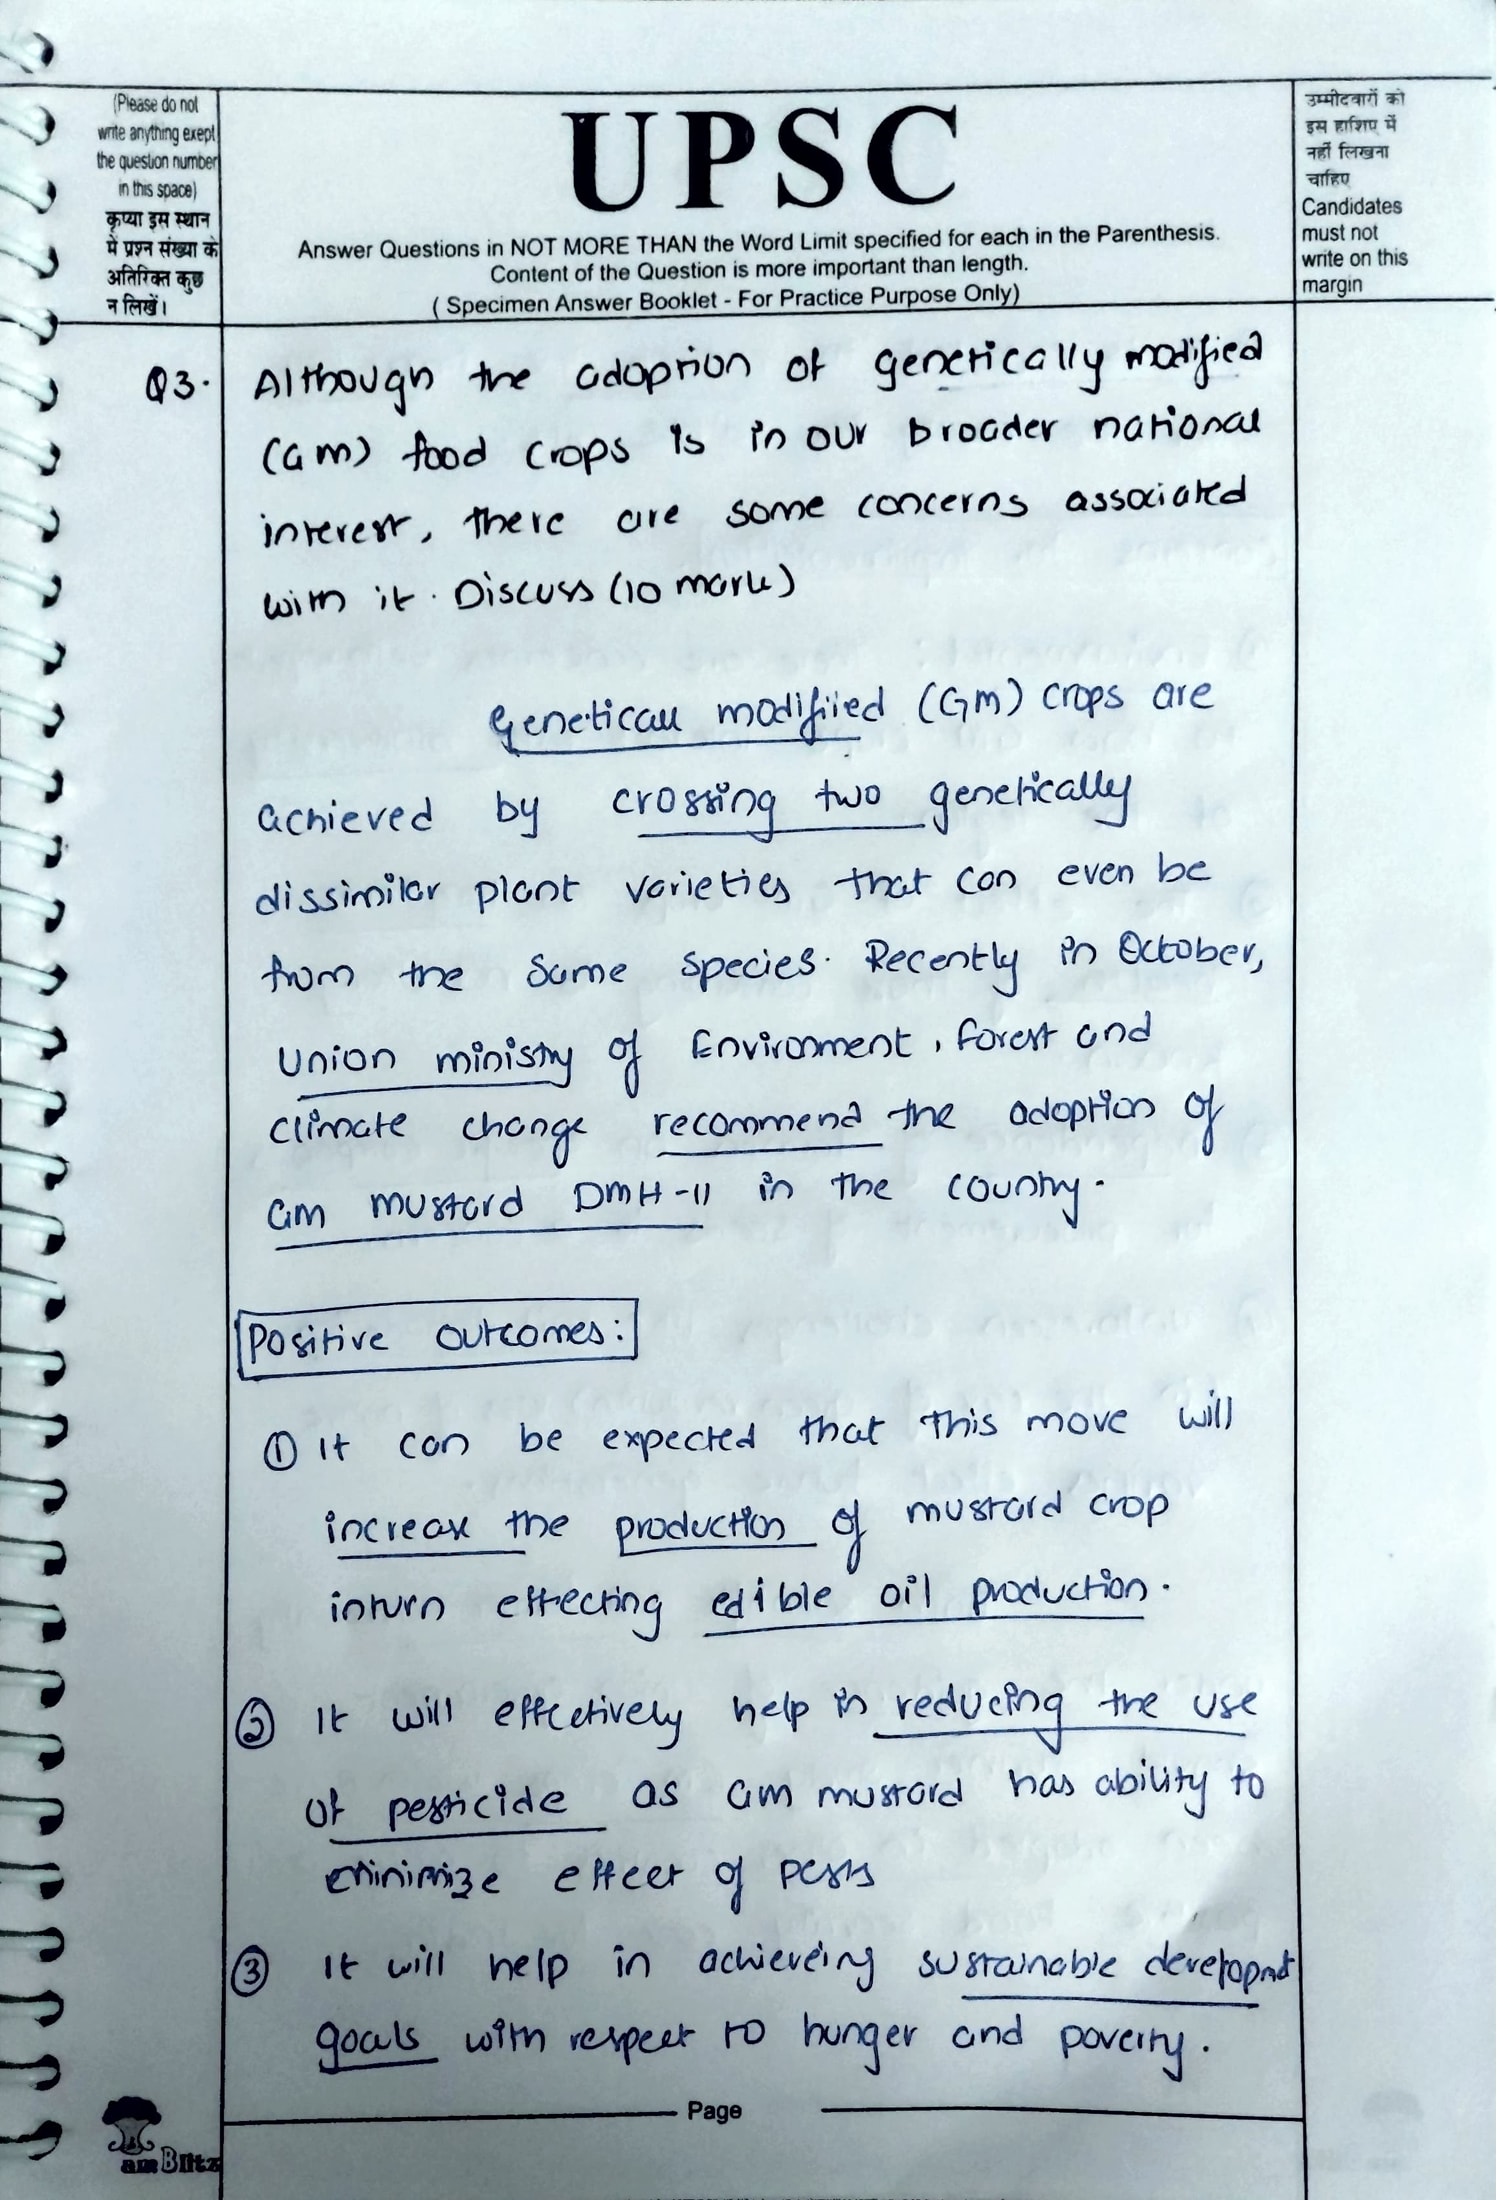 (Please do not
write anything exept
the question number
in this space)
कृप्या इस स्थान
में प्रश्न संख्या के
अतिरिक्त कुछ
न लिखें।
UPSC
Answer Questions in NOT MORE THAN the Word Limit specified for each in the Parenthesis.
Content of the Question is more important than length.
( Specimen Answer Booklet - For Practice Purpose Only)
उम्मीदवारों को
इस हाशिए में
नहीं लिखना
चाहिए
Candidates
must not
write on this
margin
Q3. Although the adoption of genetically modified
(GM) food crops is in our broader national
interest, there are some concerns associated
with it. Discuss (10 mark)
Geneticall modifiied (GM) crops are
achieved by crossing two genetically
dissimilar plant varieties that can even be
from the same species. Recently in October,
Union ministry of Environment, forest and
climate change recommend the adoption of
GM mustard DMH-11 in the country.
Positive outcomes:
① It can be expected that this move will
increase the production of mustard crop
inturn effecting edible oil production.
② It will effectively help in reducing the use
of pesticide as GM mustard has ability to
minimize effect of pests
③ It will help in achieveing sustainable development
goals with respect to hunger and poverty.
Page
am Blitz